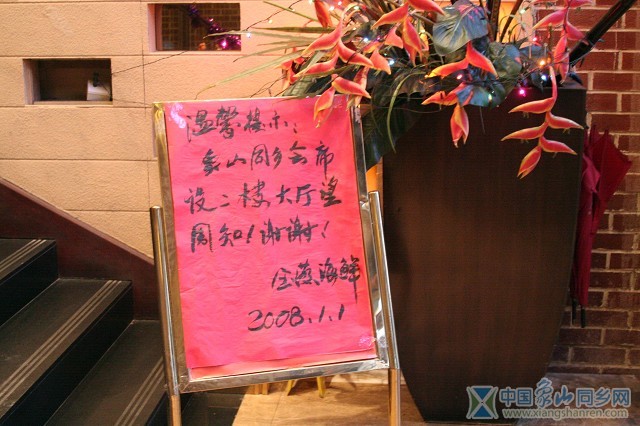 温馨提示:
象山同乡会席
设二楼大厅望
周知!谢谢!
全燕海鲜
2008.1.1
中国象山同乡网
www.xiangshanren.com